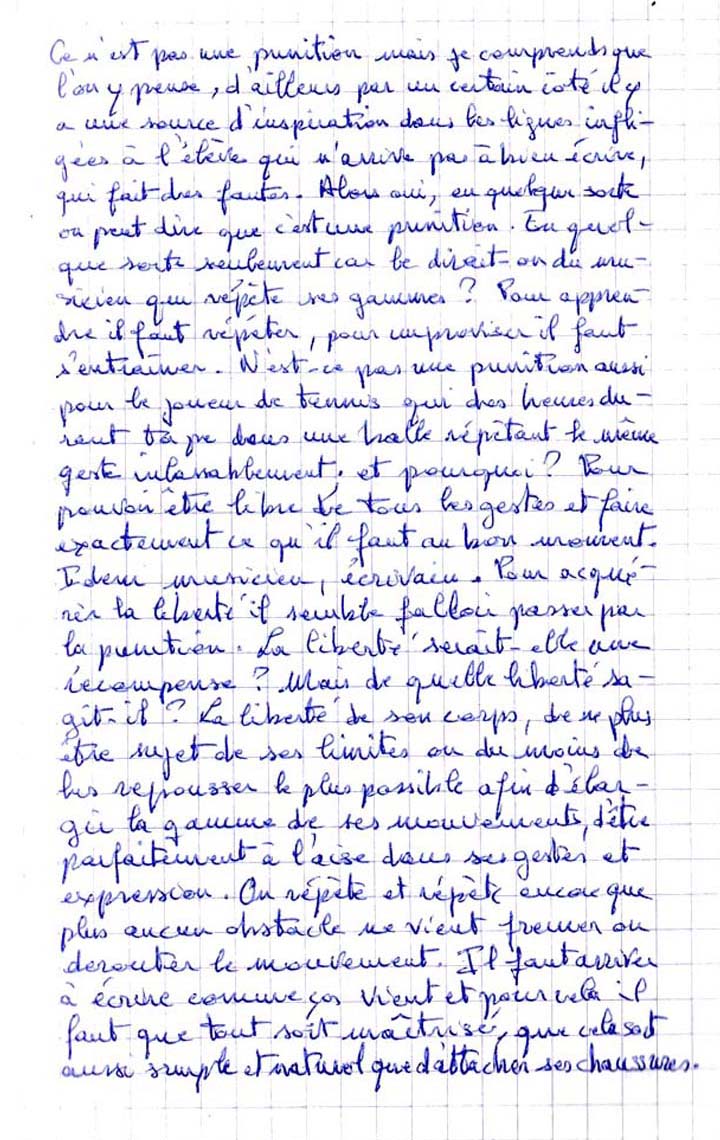 Ce n'est pas une punition mais je comprends que
l'on y pense, d'ailleurs par un certain côté il y
a une source d'inspiration dans les lignes infli-
gées à l'élève qui n'arrive pas à bien écrire,
qui fait des fautes. Alors oui, en quelque sorte
on peut dire que c'est une punition. En quel-
que sorte seulement car le dirait-on du mu-
sicien qui répète ses gammes ? Pour appren-
dre il faut répéter, pour improviser il faut
s'entraîner. N'est-ce pas une punition aussi
pour le joueur de tennis qui des heures du-
rant tape dans une balle répétant le même
geste inlassablement, et pourquoi ? Pour
pouvoir être libre de tous les gestes et faire
exactement ce qu'il faut au bon moment.
Idem musicien, écrivain. Pour acqué-
rir la liberté il semble falloir passer par
la punition. La liberté serait-elle une
récompense ? Mais de quelle liberté sa-
git-il ? La liberté de son corps, de ne plus
être sujet de ses limites ou du moins de
les repousser le plus possible afin d'élar-
gir la gamme de ses mouvements, d'être
parfaitement à l'aise dans ses gestes et
expression. On répète et répète encore que
plus aucun obstacle ne vient freiner ou
derouter le mouvement. Il faut arriver
à écrire comme ças vient et pour cela il
faut que tout soit maîtrisé, que cela soit
aussi simple et naturel que d'attacher ses chaussures.